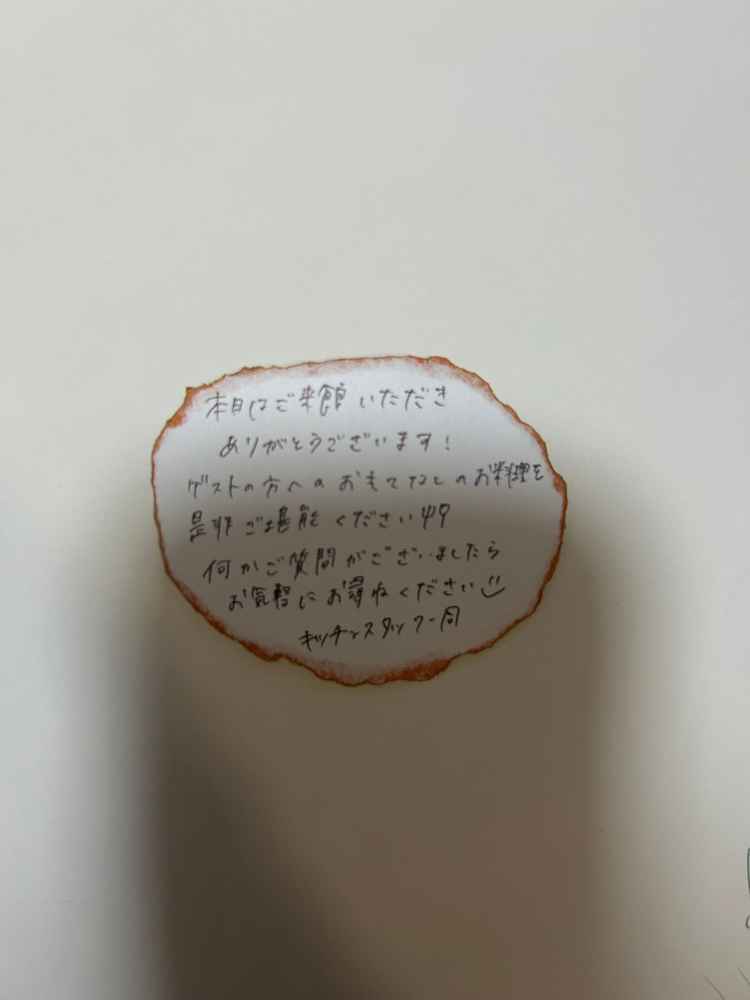 本日はご来館いただき
ありがとうございます!
ゲストの方へのおもてなしのお料理を
是非ご堪能ください
何かご質問がございましたら
お気軽にお尋ねください
キッチンスタッフ一同